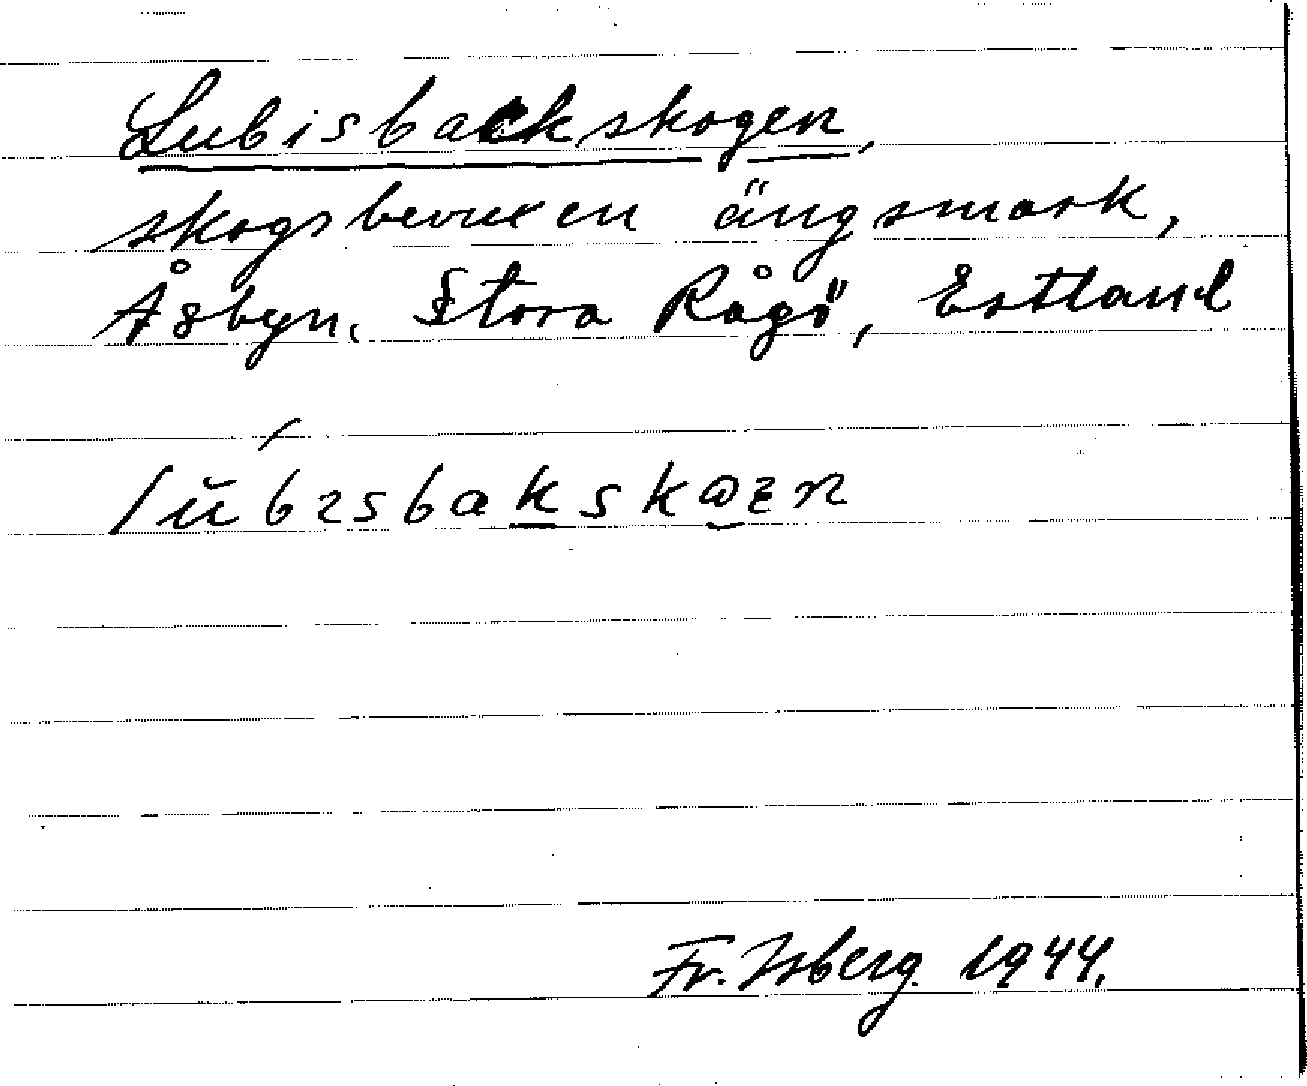 Lubisbackskogen,
skogsbevuxen ängsmark,
Åsbyn. Stora Rågö, Estland
Fr. Isberg. 1944.